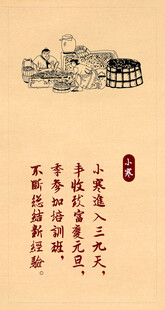 小寒
小寒進入三九天，
丰收致富慶元旦，
季参加培訓班，
不斷總結新經驗。